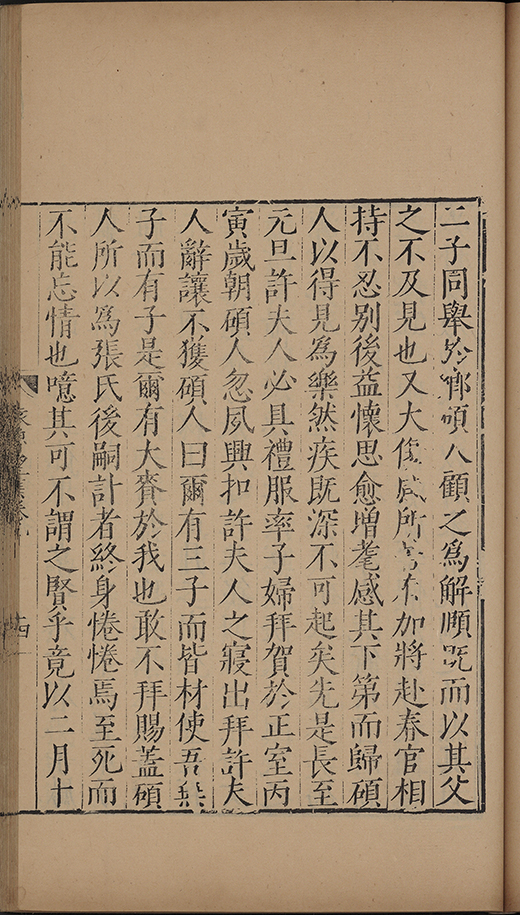 二子同舉於鄉碩人顧之爲解頤旣而以其父
之不及見也又大傷感所苦有加將赴春官相
持不忍别後益懷思愈增耄感其下第而歸碩
人以得見爲樂然疾既深不可起矣先是長至
元旦許夫人必具禮服率子婦拜賀於正室丙
寅歲朝碩人忽夙興扣許夫人之寢出拜許夫
人辭讓不獲碩人曰爾有三子而皆材使吾無
子而有子是爾有大賚於我也敢不拜賜蓋碩
人所以爲張氏後嗣計者終身惓惓焉至死而
不能忘情也噫其可不謂之賢乎竟以二月十
十四